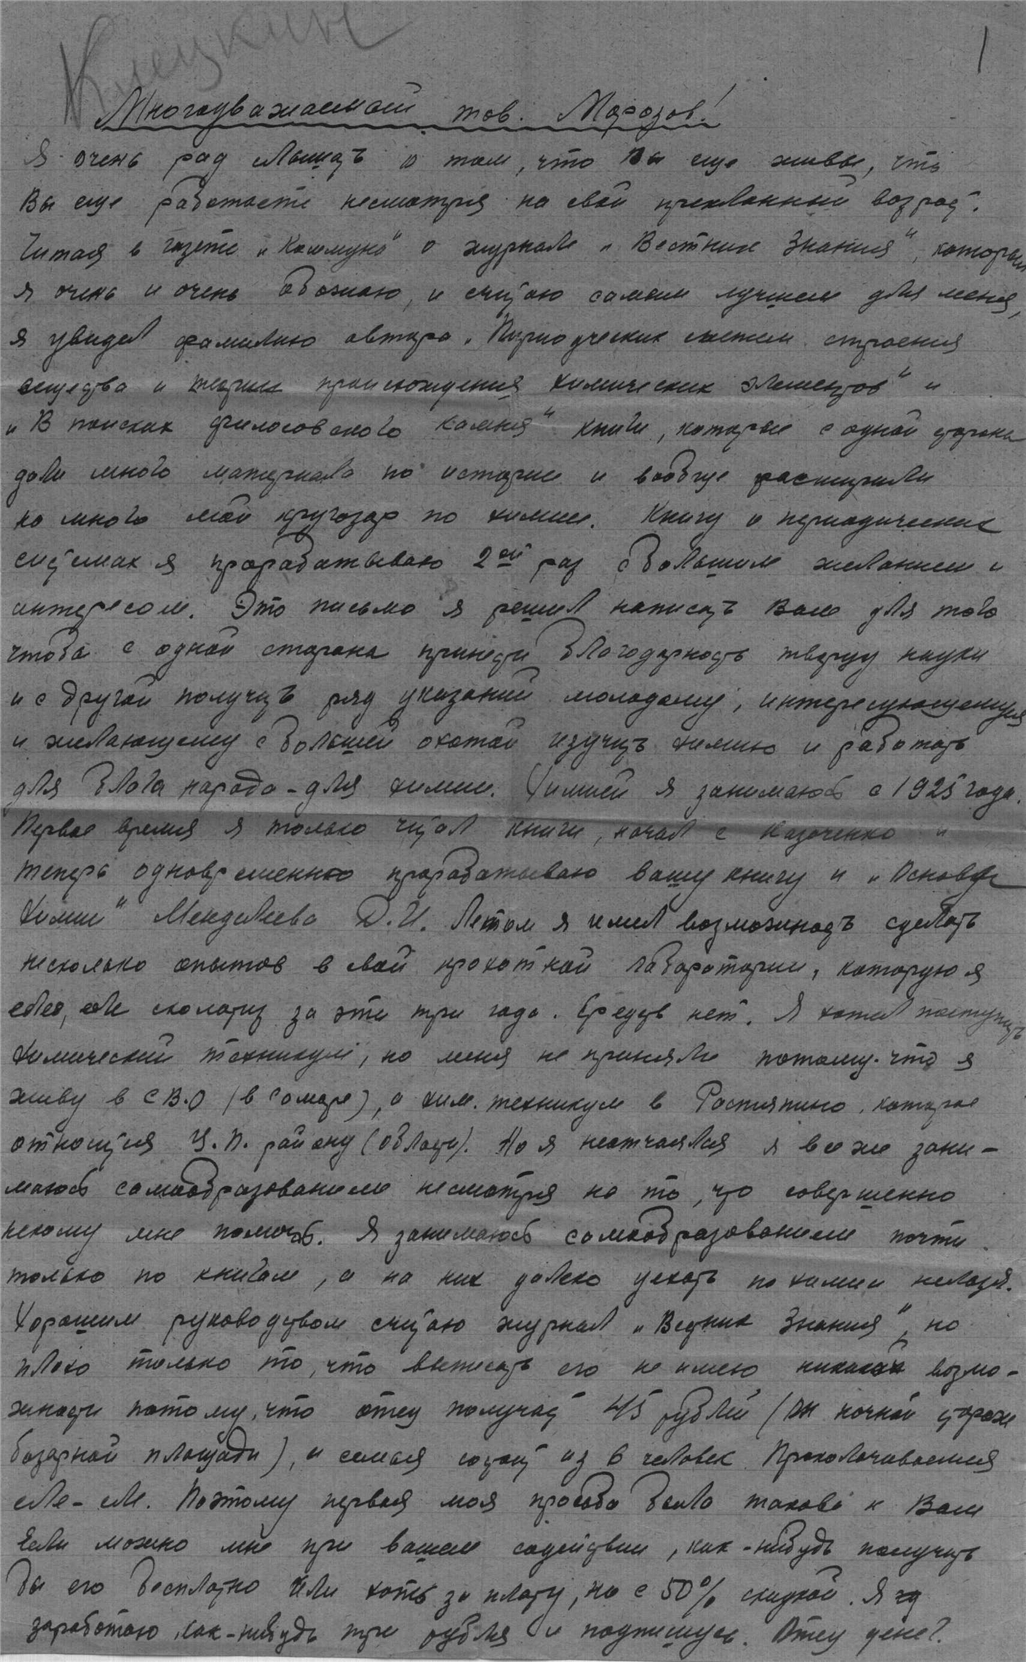 Клецкин
1
Многоуважаемый тов. Морозов!
Я очень рад слышать о том, что Вы еще живы, что
Вы еще работаете несмотря на свой преклонный возраст.
Читая в газете „Коммуна" о журнале „Вестник Знания", который
я очень и очень обожаю, и считаю самым лучшим для меня,
я увидел фамилию автора „Периодических систем строения
вещества и теории происхождения химических элементов" и
„В поисках философского камня" книги, которые с одной стороны
дали много материала по истории и вообще расширили
на много мой кругозор по химии. Книгу о периодических
системах я прорабатываю 2ой раз с большим желанием и
интересом. Это письмо я решил написать Вам для того
чтобы с одной стороны принести благодарность творцу науки
и с другой получить ряд указаний молодому, интересующемуся
и желающему с большей охотой изучить химию и работать
для блага народа - для химии. Химией я занимаюсь с 1925 года.
Первое время я только читал книги, начал с Казаченко и
теперь одновременно прорабатываю вашу книгу и „Основы
Химии" Менделеева Д.И. Летом я имел возможность сделать
несколько опытов в свой крохотной лаборатории, которую я
еле, еле сколотил за эти три года. Средств нет. Я хотел поступить
химический техникум, но меня не приняли потому-что я
живу в С.В.О (в Самаре), а хим. техникум в Растяпино, которое
относится Ц.П. району (области). Но я неотчаялся я все же зани-
маюсь самообразованием несмотря на то, что совершенно
некому мне помочь. Я занимаюсь самообразованием почти
только по книгам, а на них далеко уехать по химии нельзя.
Хорошим руководством считаю журнал „Вестник Знания", но
плохо только то, что выписать его не имею никакой возмо-
жности потому, что отец получает 45 рублей (он ночной сторож
базарной площади), и семья состоит из 6 человек. Проколачиваемся
еле-еле. Поэтому первая моя просьба была такова к Вам
Если можно мне при вашем содействии, как-нибудь получить
бы его бесплатно или хоть за плату, но с 50% скидкой. Я
заработаю как-нибудь три рубля и подпишусь. Отец денег.